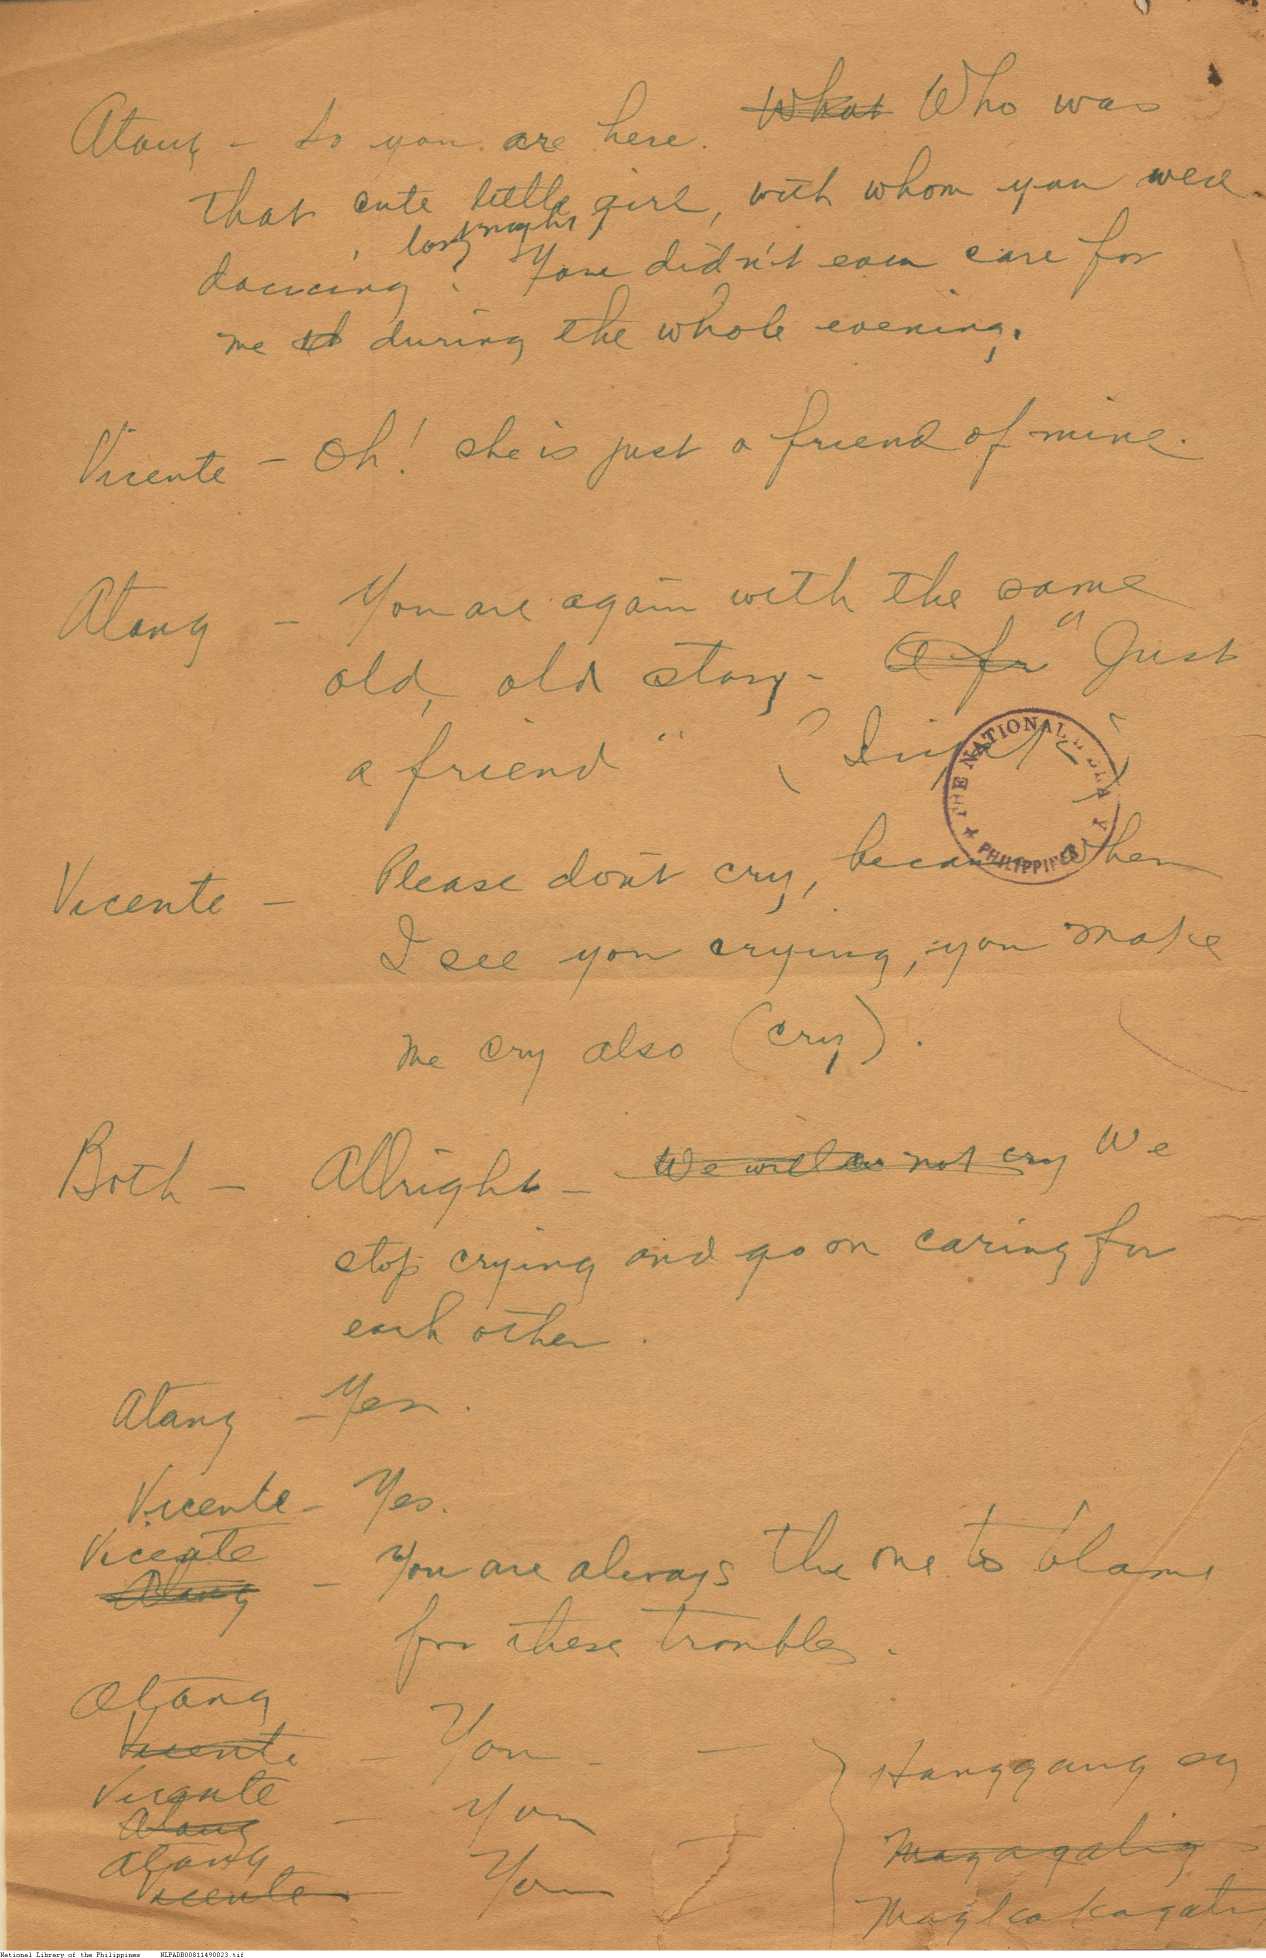 Atang - So you are here. What Who was
that cute little girl, with whom you were
last night
dancing? You didn't even care for
me during the whole evening.
Vicente - Oh! she is just a friend of mine.
Atang - You are again with the same
old, old story - O fr "Just
a friend" (
THE NATIONAL LIBRARY
PHILIPPINES
Vicente - Please don't cry, because when
I see you crying, you make
me cry also (cry).
Both - Allright - We will not cry We
stop crying and go on caring for
each other.
Atang - Yes.
Vicente - Yes.
Vicente
Atang - You are always the one to blame
for these troubles.
Atang
Vicente - You - - } Hanggang sa
Vicente
Atang - You
Magagalig
Atang
Vicente - You
Magkakagalit
National Library of the Philippines NLPADB00811490023.tif